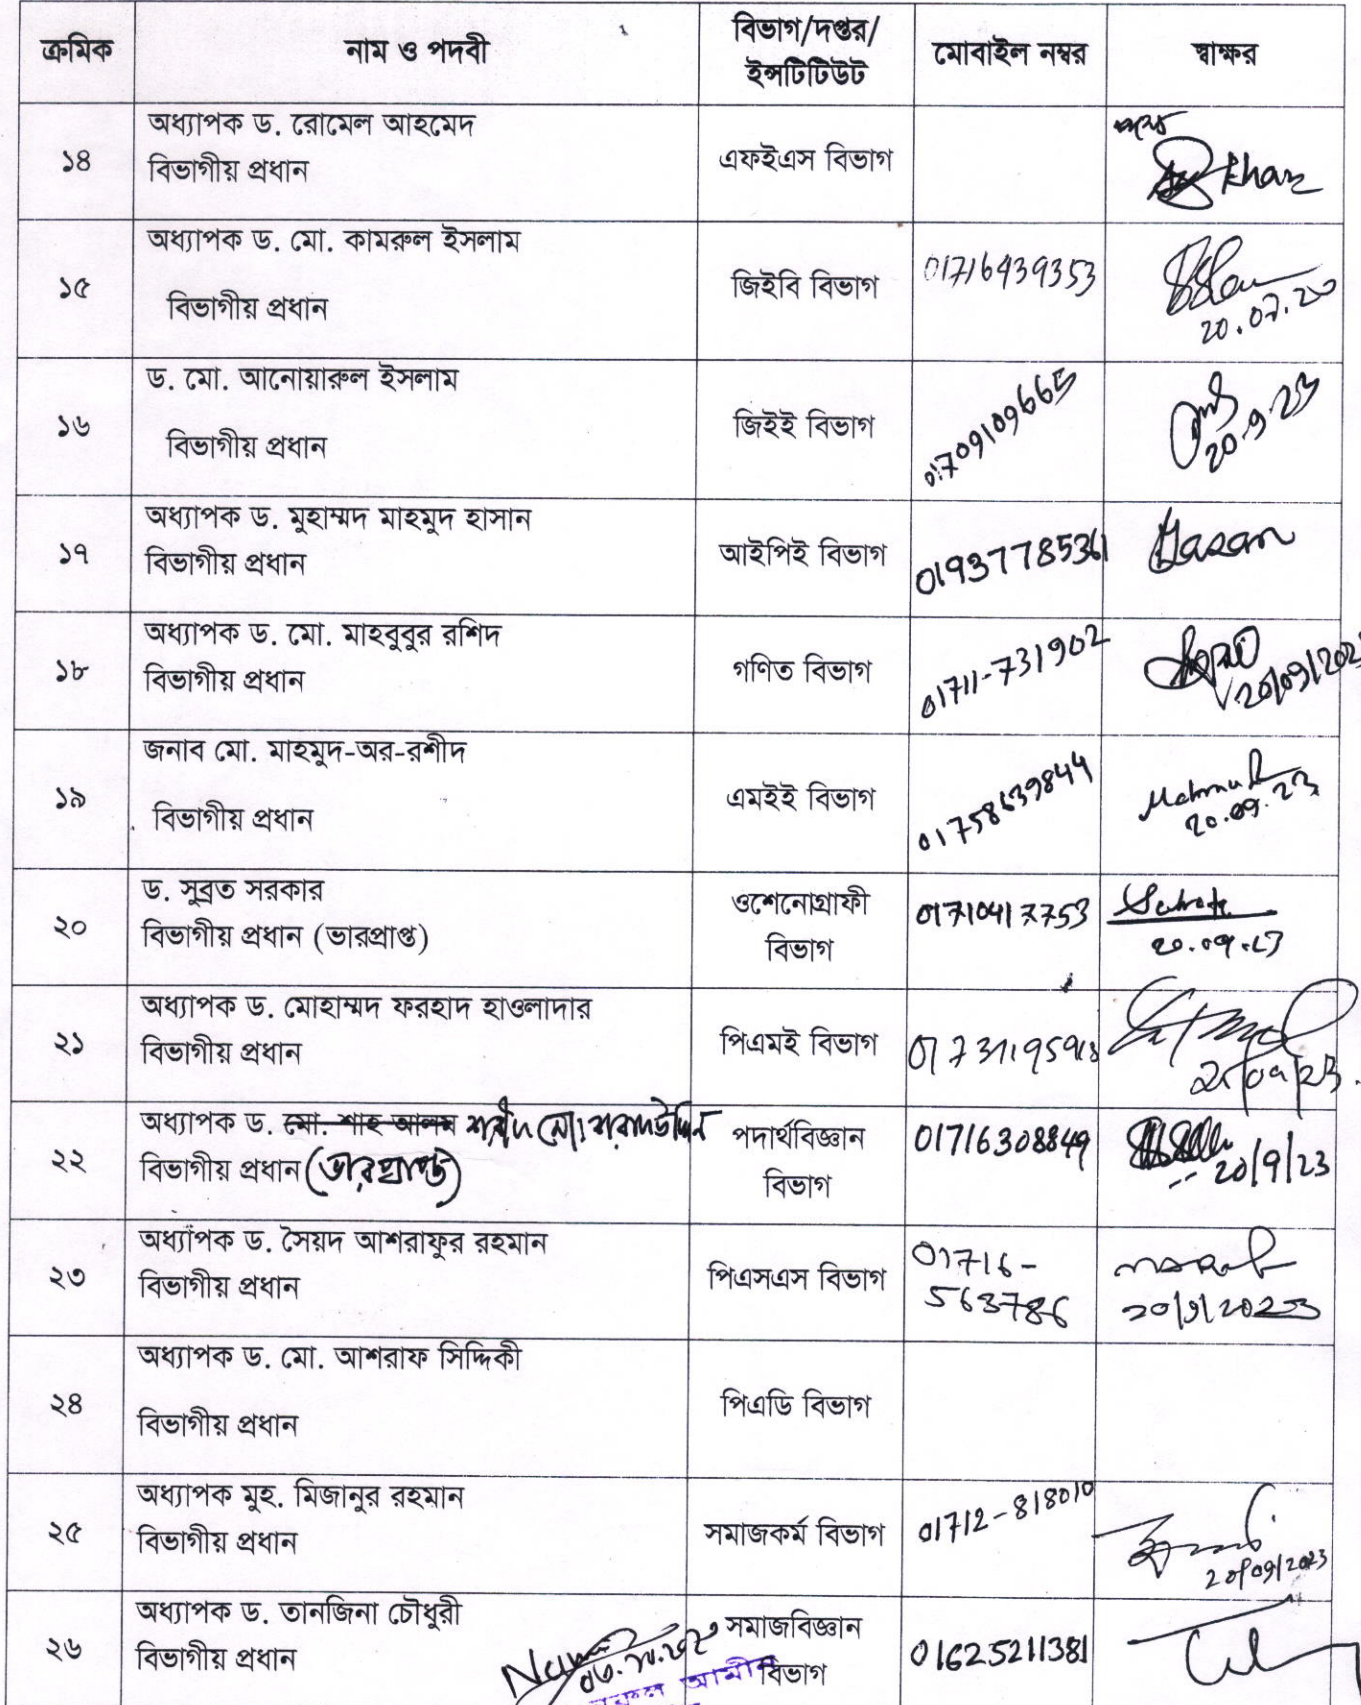 ক্রমিক নাম ও পদবী বিভাগ/দপ্তর/ইন্সটিটিউট মোবাইল নম্বর স্বাক্ষর
অধ্যাপক ড. রোমেল আহমেদ
১৪ বিভাগীয় প্রধান এফইএস বিভাগ Khan
অধ্যাপক ড. মো. কামরুল ইসলাম
১৫ বিভাগীয় প্রধান জিইবি বিভাগ 01716439353
20.07.20
ড. মো. আনোয়ারুল ইসলাম
১৬ বিভাগীয় প্রধান জিইই বিভাগ 01709109665
20.9.23
অধ্যাপক ড. মুহাম্মদ মাহমুদ হাসান
১৭ বিভাগীয় প্রধান আইপিই বিভাগ 01937785361 Hasan
অধ্যাপক ড. মো. মাহবুবুর রশিদ
১৮ বিভাগীয় প্রধান গণিত বিভাগ 01711-731902
20/09/2023
জনাব মো. মাহমুদ-অর-রশীদ
১৯ বিভাগীয় প্রধান এমইই বিভাগ 01758639844
20.09.23
ড. সুব্রত সরকার
২০ বিভাগীয় প্রধান (ভারপ্রাপ্ত) ওশেনোগ্রাফী বিভাগ 01710417753 Subrata
20.09.23
অধ্যাপক ড. মোহাম্মদ ফরহাদ হাওলাদার
২১ বিভাগীয় প্রধান পিএমই বিভাগ
অধ্যাপক ড. মো. শাহ আলম
২২ বিভাগীয় প্রধান (ভারপ্রাপ্ত) পদার্থবিজ্ঞান বিভাগ 01716308849
20/9/23
অধ্যাপক ড. সৈয়দ আশরাফুর রহমান
২৩ বিভাগীয় প্রধান পিএসএস বিভাগ 01716-
563786
20/9/2023
অধ্যাপক ড. মো. আশরাফ সিদ্দিকী
২৪ বিভাগীয় প্রধান পিএডি বিভাগ
অধ্যাপক মুহ. মিজানুর রহমান
২৫ বিভাগীয় প্রধান সমাজকর্ম বিভাগ 01712-818010
20/09/2023
অধ্যাপক ড. তানজিনা চৌধুরী
২৬ বিভাগীয় প্রধান সমাজবিজ্ঞান বিভাগ 01625211381
আমীন